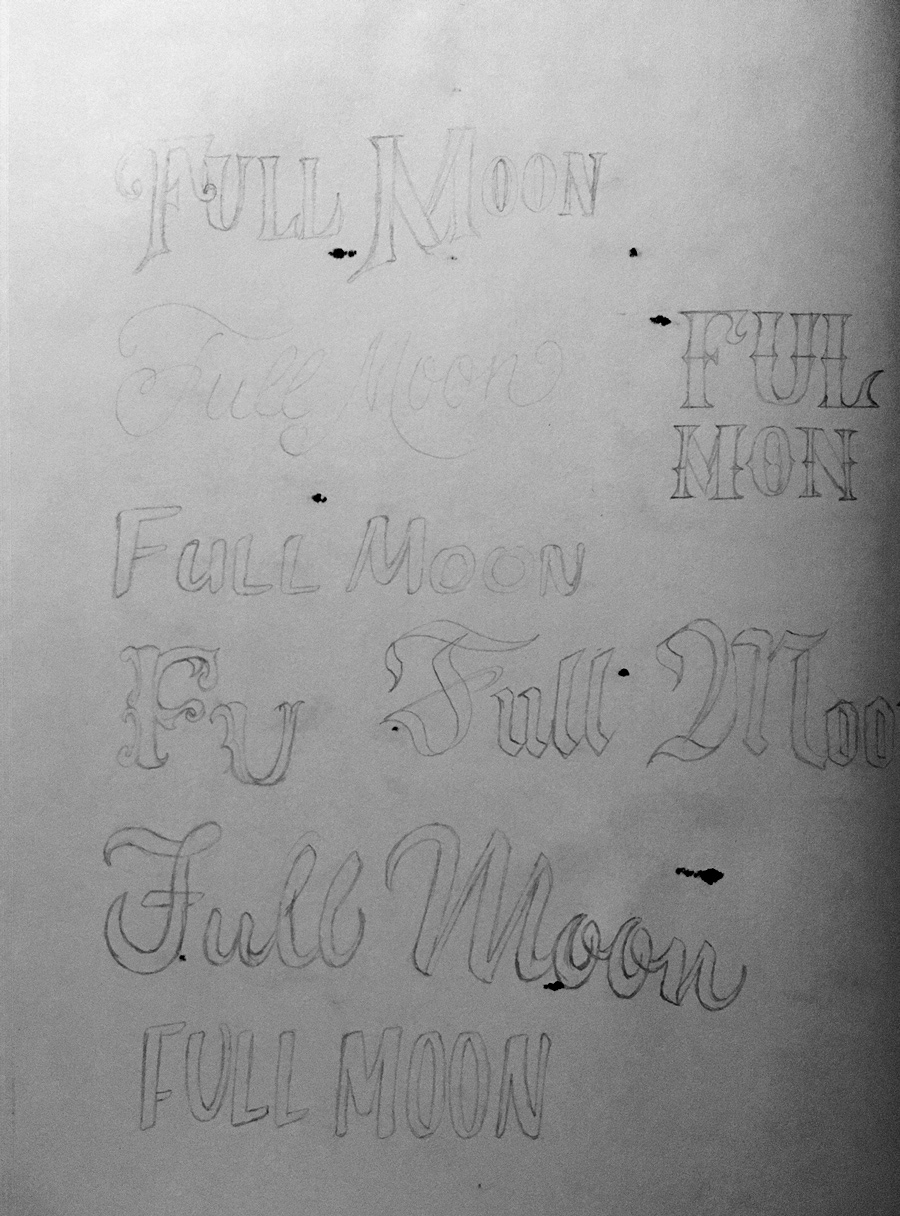 FULL MOON
Full Moon
FUL
MON
FULL MOON
FU
Full Moo
Full Moon
FULL MOON